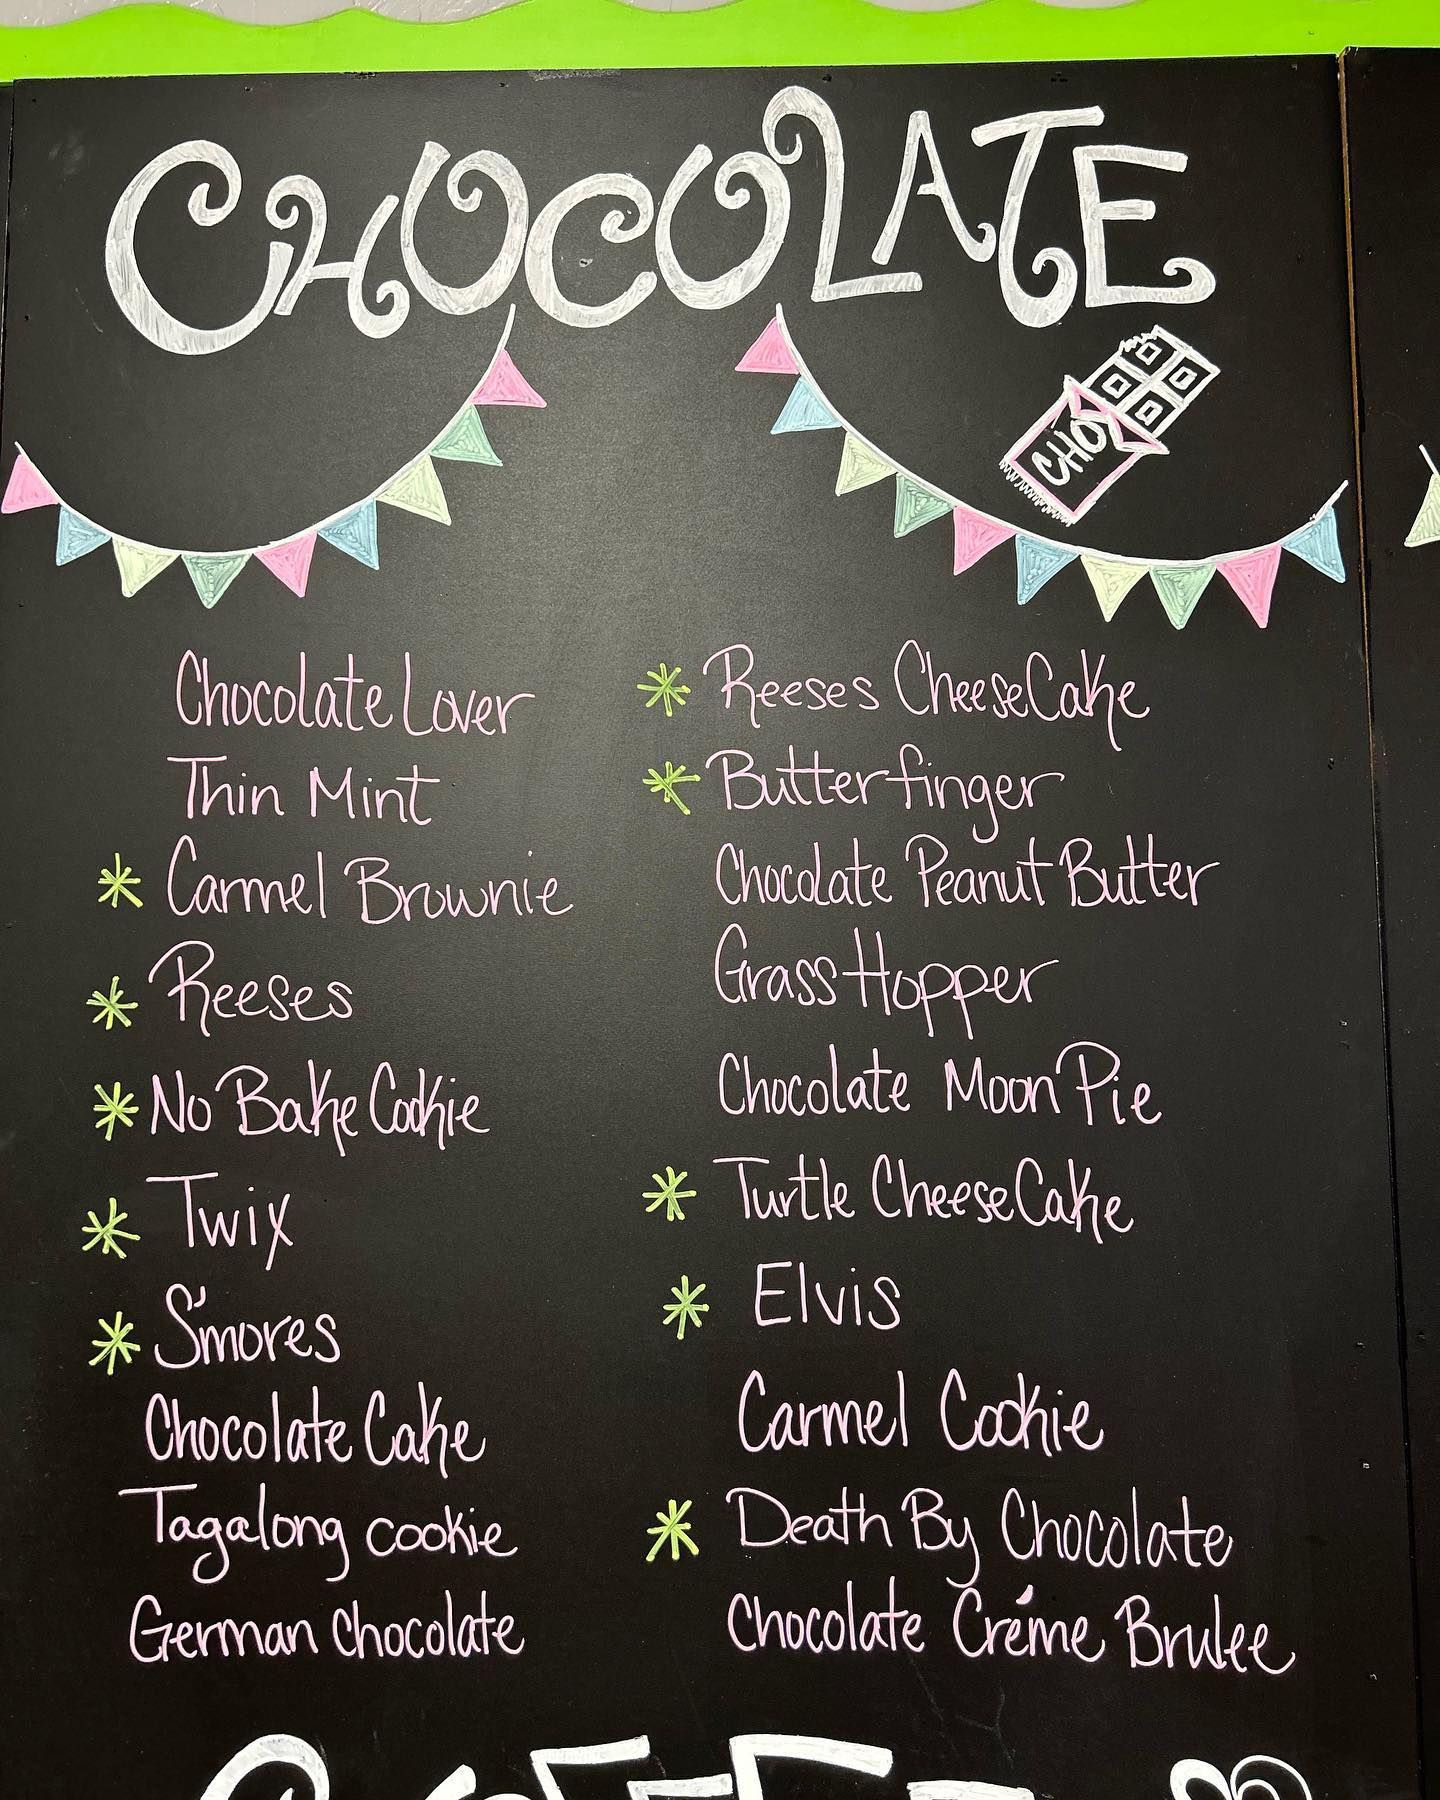 CHOCOLATE
CHO
Chocolate Lover
Thin Mint
* Carmel Brownie
* Reeses
* No Bake Cookie
* Twix
* S'mores
Chocolate Cake
Tagalong cookie
German chocolate
* Reeses CheeseCake
* Butterfinger
Chocolate Peanut Butter
Grass Hopper
Chocolate Moon Pie
* Turtle CheeseCake
* Elvis
Carmel Cookie
* Death By Chocolate
Chocolate Créme Brulee